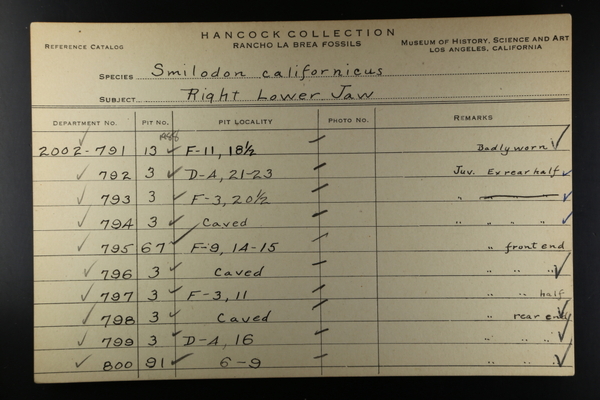 HANCOCK COLLECTION
REFERENCE CATALOG RANCHO LA BREA FOSSILS MUSEUM OF HISTORY, SCIENCE AND ART
LOS ANGELES, CALIFORNIA
SPECIES Smilodon californicus
SUBJECT Right Lower Jaw
DEPARTMENT NO. PIT NO. PIT LOCALITY PHOTO NO. REMARKS
2002-791 13 F-11, 18½ Badly worn
792 3 D-A, 21-23 Juv. Ex rear half
793 3 F-3, 20½ "
794 3 Caved " " " "
795 67 F-9, 14-15 " front end
796 3 Caved " " "
797 3 F-3, 11 " " half
798 3 Caved " rear end
799 3 D-A, 16 " " "
800 91 6-9 " " "